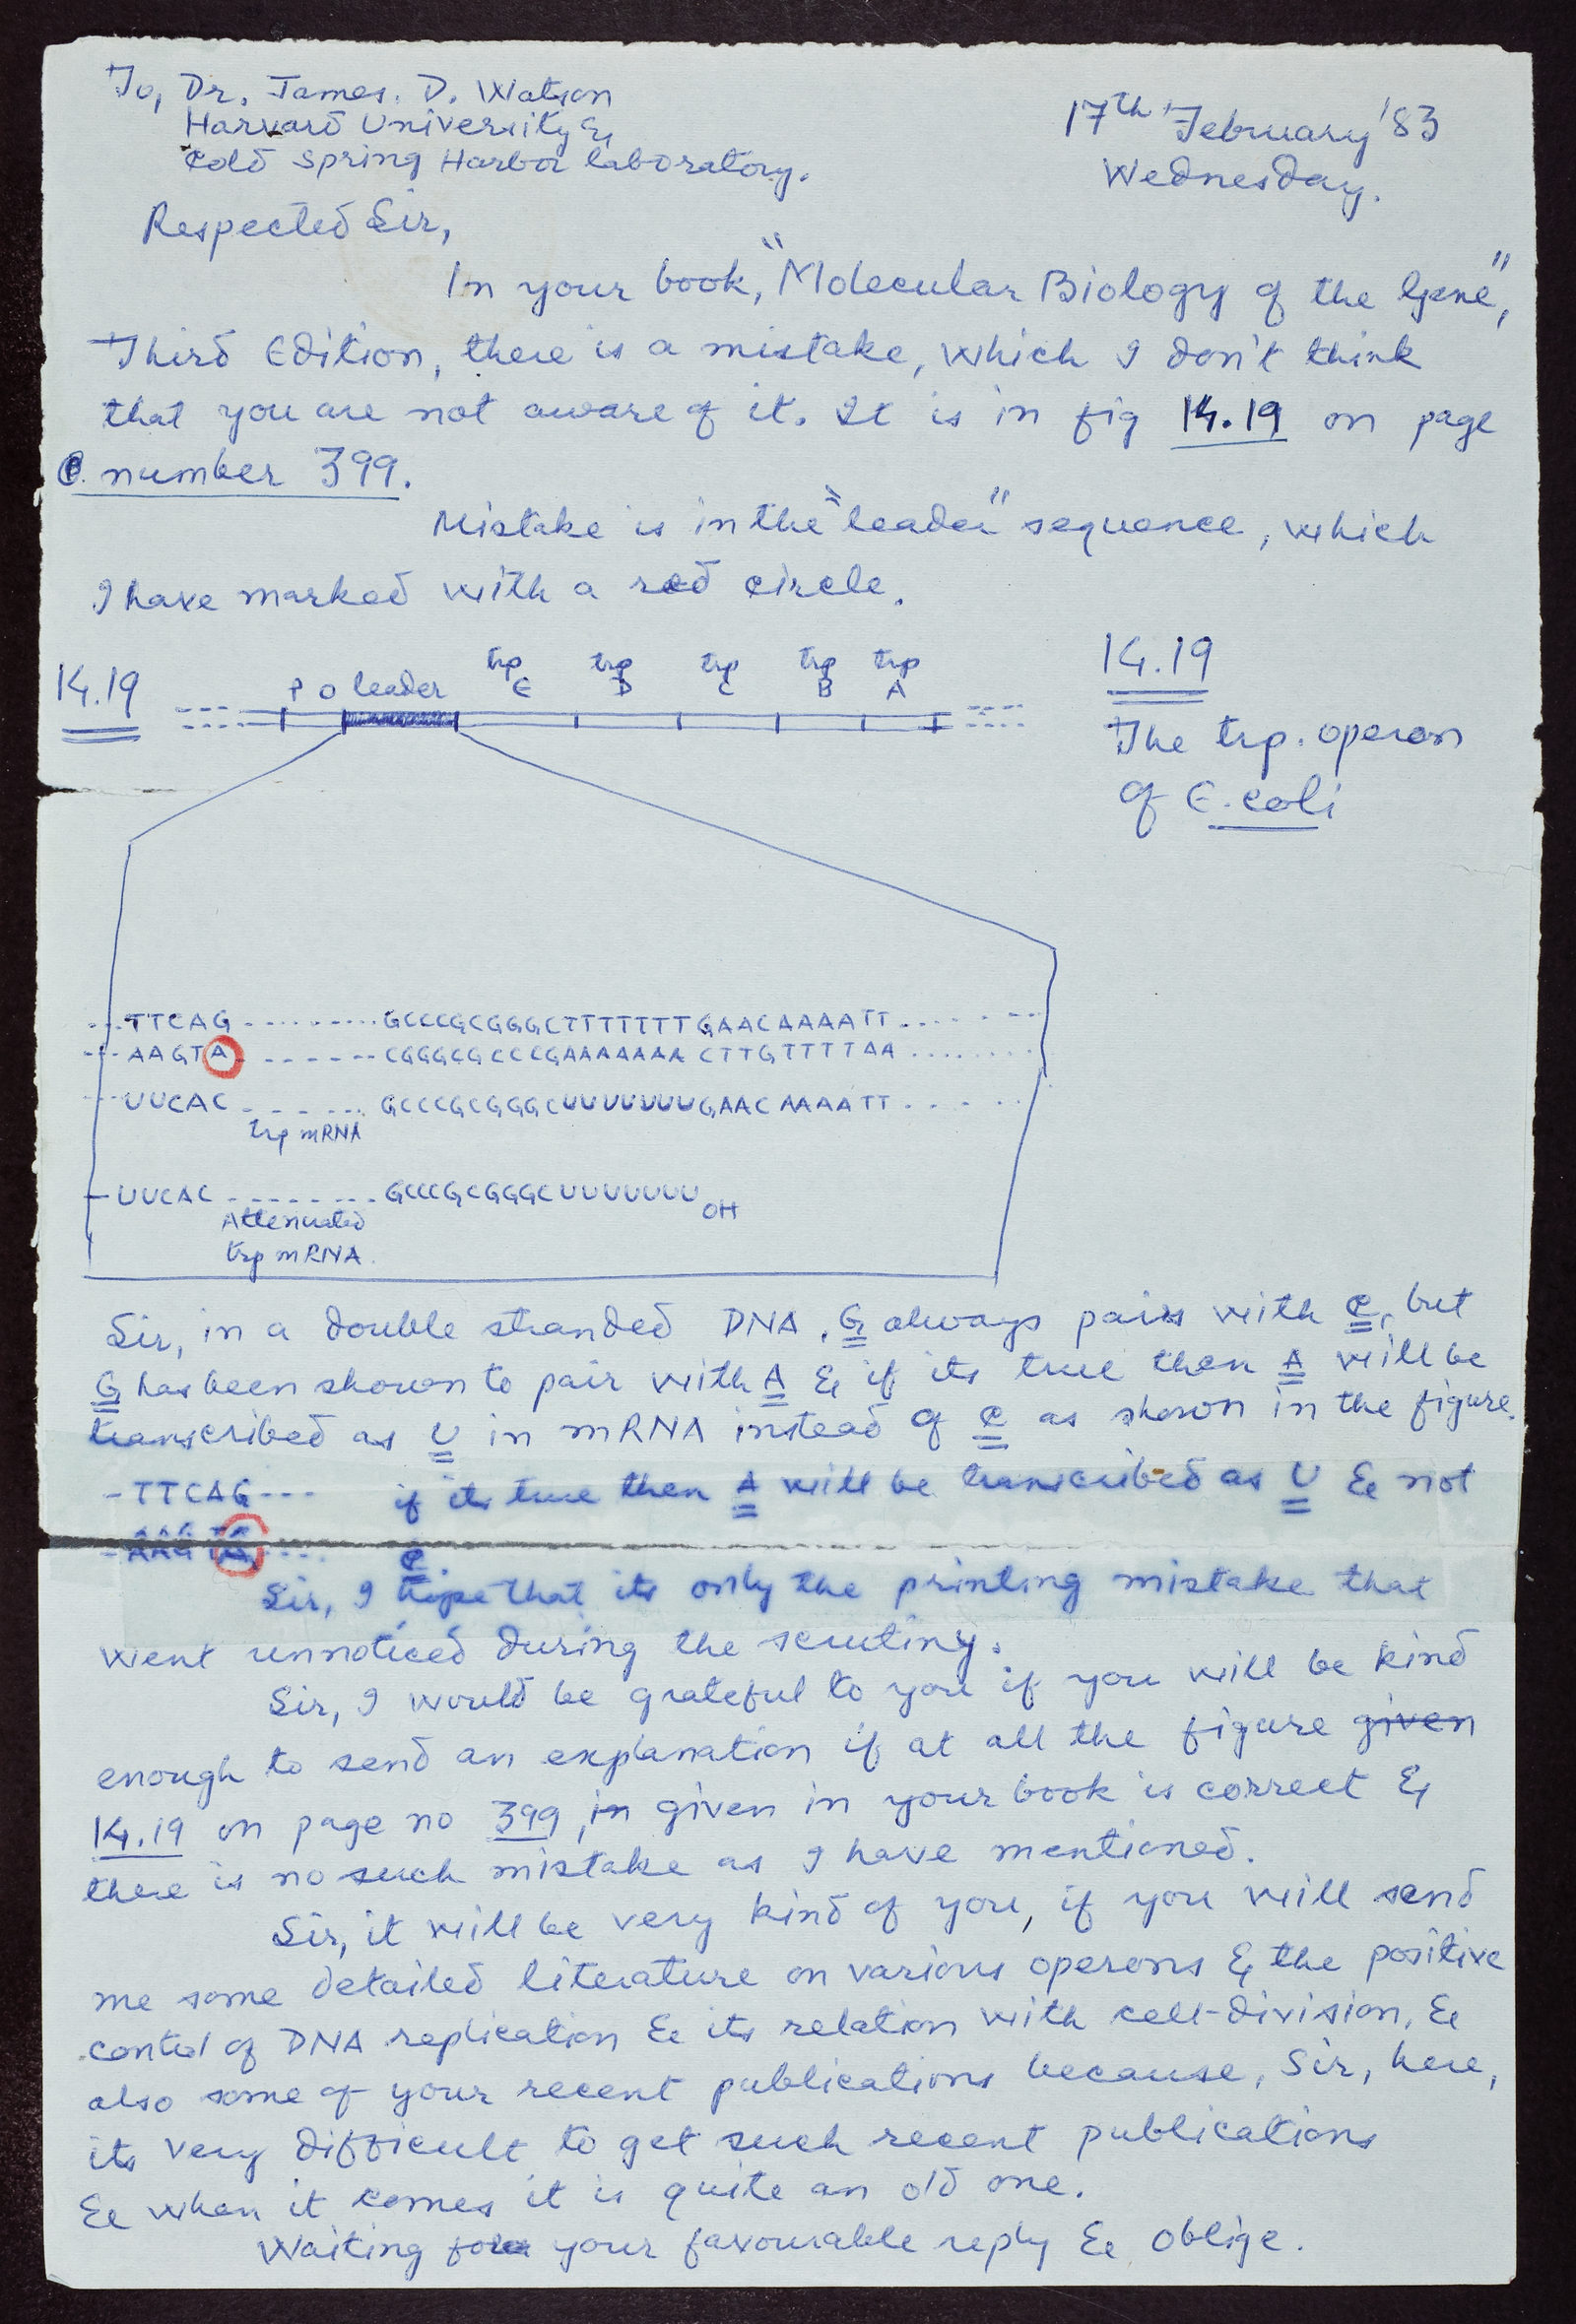 To, Dr. James. D. Watson
Harvard University &
Cold Spring Harbor laboratory.
17th February '83
Wednesday.
Respected Sir,
In your book, "Molecular Biology of the Gene",
Third Edition, there is a mistake, which I don't think
that you are not aware of it. It is in fig 14.19 on page
number 399.
Mistake is in the "leader" sequence, which
I have marked with a red circle.
14.19
P O leader trp E trp D trp C trp B trp A
14.19
The trp. operon
of E. coli
---TTCAG---------GCCCGCGGGCTTTTTTTGAACAAAATT.....---
---AAGTA-------CGGGCGCCCGAAAAAAACTTGTTTTAA........
---UUCAC-------GCCCGCGGGCUUUUUUUGAACAAAATT.....
trp mRNA
-UUCAC--------GCCCGCGGGCUUUUUUU OH
Attenuated
trp mRNA.
Sir, in a double stranded DNA, G always pairs with C, but
G has been shown to pair with A & if its true then A will be
transcribed as U in mRNA instead of C as shown in the figure.
-TTCAG--- if its true then A will be transcribed as U & not
-AAGTA---- C.
Sir, I hope that its only the printing mistake that
went unnoticed during the scrutiny.
Sir, I would be grateful to you if you will be kind
enough to send an explanation if at all the figure given
14.19 on page no 399, in given in your book is correct &
there is no such mistake as I have mentioned.
Sir, it will be very kind of you, if you will send
me some detailed literature on various operons & the positive
contol of DNA replication & its relation with cell-division, &
also some of your recent publications because, Sir, here,
its very difficult to get such recent publications
& when it comes it is quite an old one.
Waiting for your favourable reply & oblige.